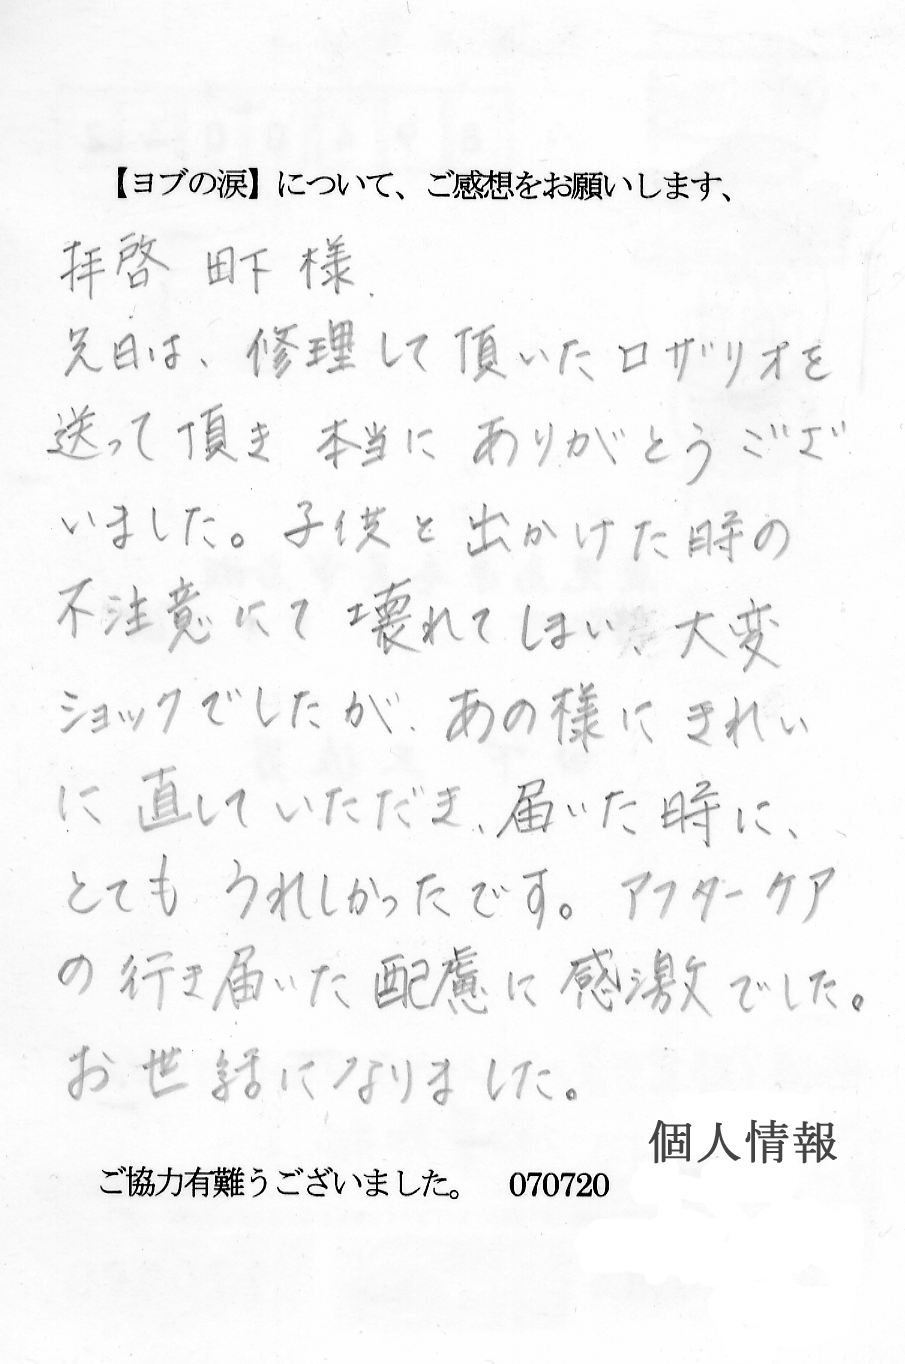 【ヨブの涙】について、ご感想をお願いします、
拝啓 田下 様
先日は、修理して頂いたロザリオを
送って頂き 本当に ありがとうござ
いました。子供と出かけた時の
不注意にて壊れてしまい、大変
ショックでしたが、あの様にきれい
に直していただき、届いた時に、
とてもうれしかったです。アフターケア
の行き届いた配慮に感激でした。
お世話になりました。
個人情報
ご協力有難うございました。 070720